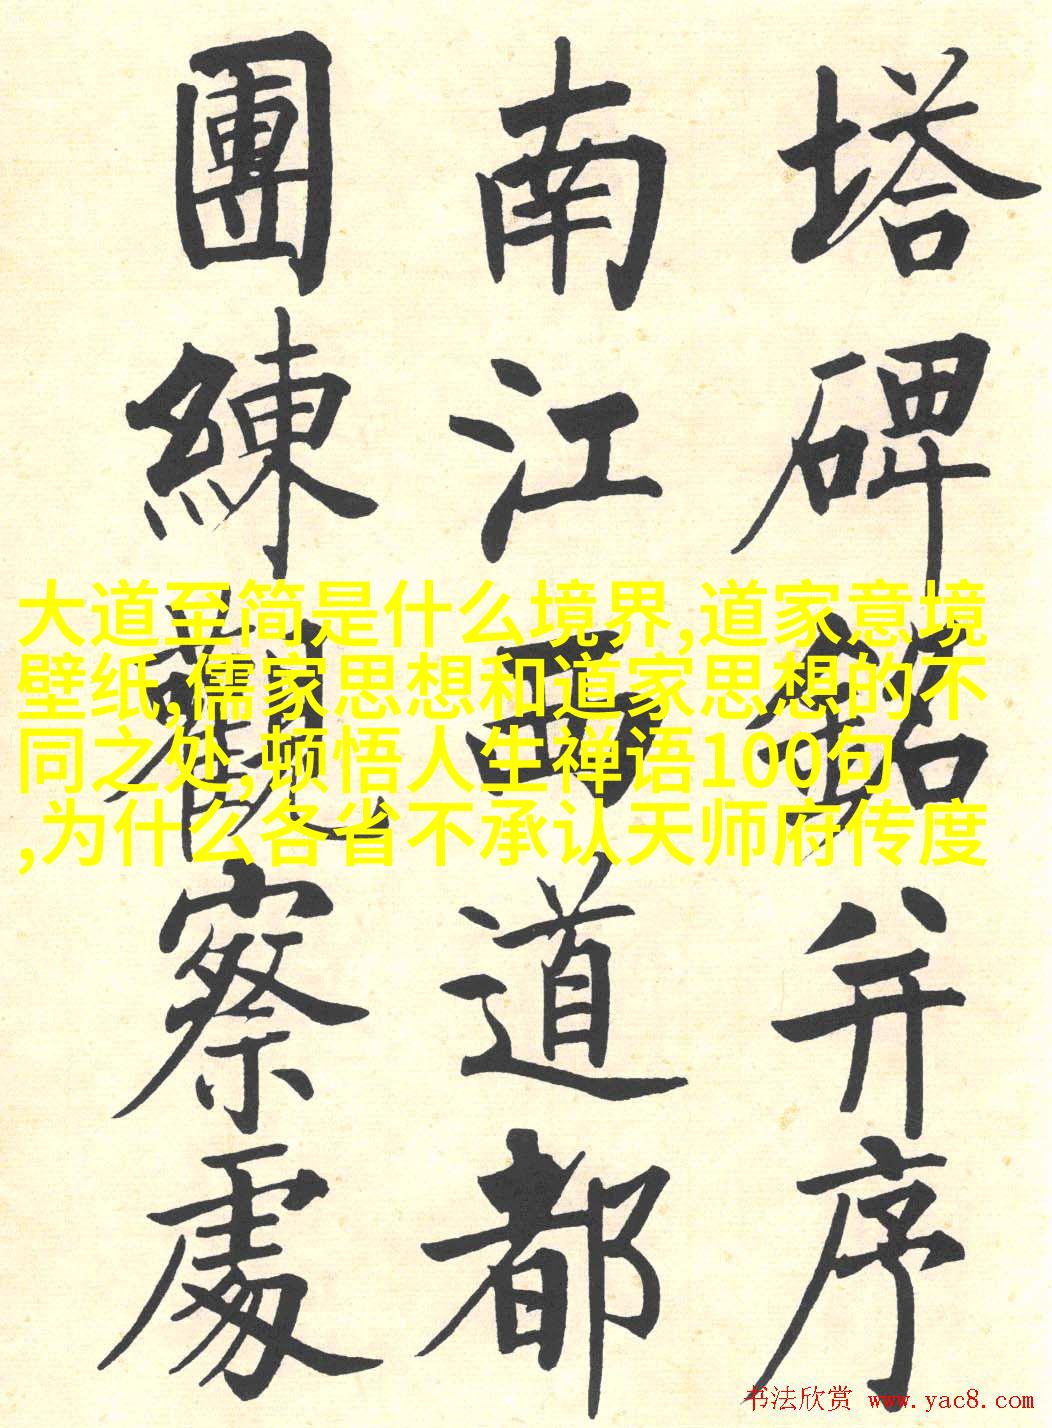 塔碑銘并序
南江西道都
團練觀察處
大道至简是什么境界,道家意境
壁纸,儒家思想和道家思想的不
同之处,顿悟人生禅语100句
,为什么各省不承认天师府传度
书法欣赏 www.yac8.com